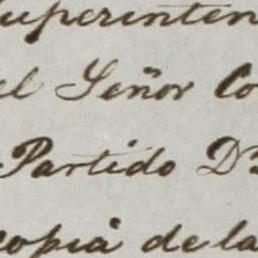 Superinten
el Señor Co
Partido Dn
copia de la